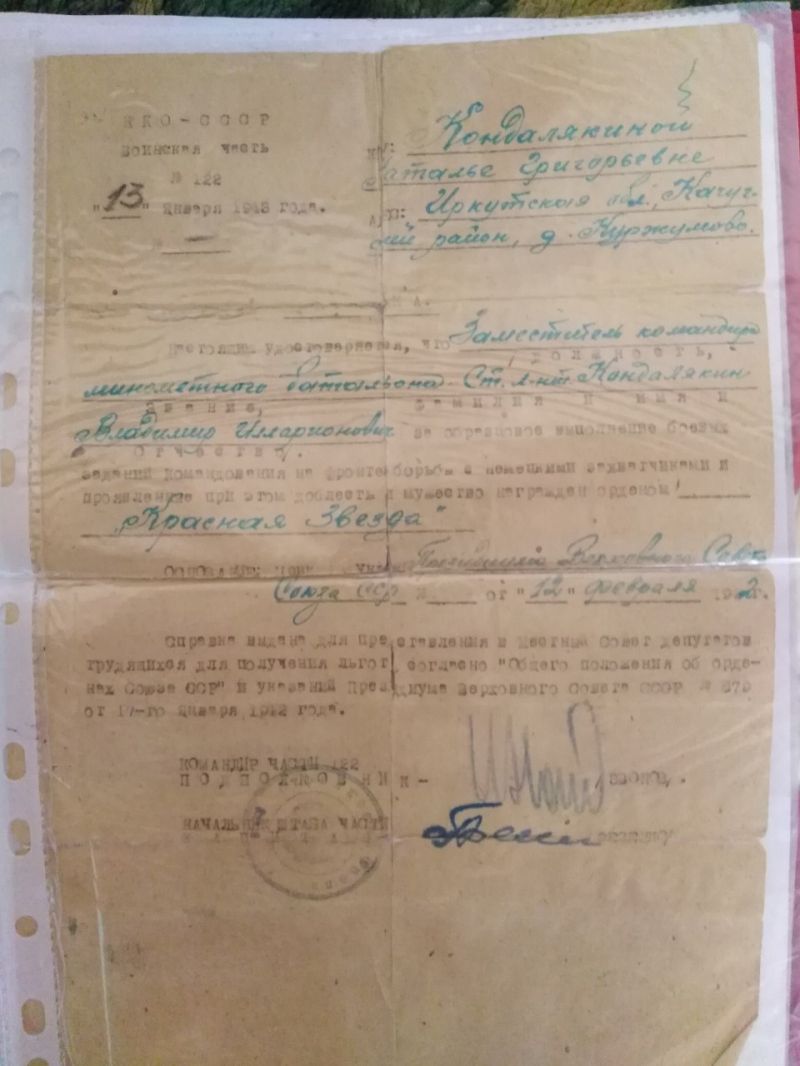 НКО-СССР
Воинская часть
№ 122
"13" января 1943 года.
№
Кому: Кондалякиной
Наталье Григорьевне
Адрес: Иркутская обл., Качуг-
ский район, д. Куржумово.
Настоящим удостоверяется, что Заместитель командира
должность,
минометного батальона Ст. л-нт Кондалякин
звание, фамилия и имя и
Владимир Илларионович за образцовое выполнение боевых
отчество.
заданий командования на фронте борьбы с немецкими захватчиками и
проявленные при этом доблесть и мужество награжден орденом
"Красная Звезда"
Президиума Верховного Совета
Союза ССР № от "12" февраля 1942г.
Справка выдана для представления в местный Совет депутатов
трудящихся для получения льгот согласно "Общего положения об орде-
нах Союза ССР" и указаний Президиума Верховного Совета СССР №
от 17-го января 1942 года.
КОМАНДИР ЧАСТИ 122
ПОДПОЛКОВНИК-
НАЧАЛЬНИК ШТАБА ЧАСТИ